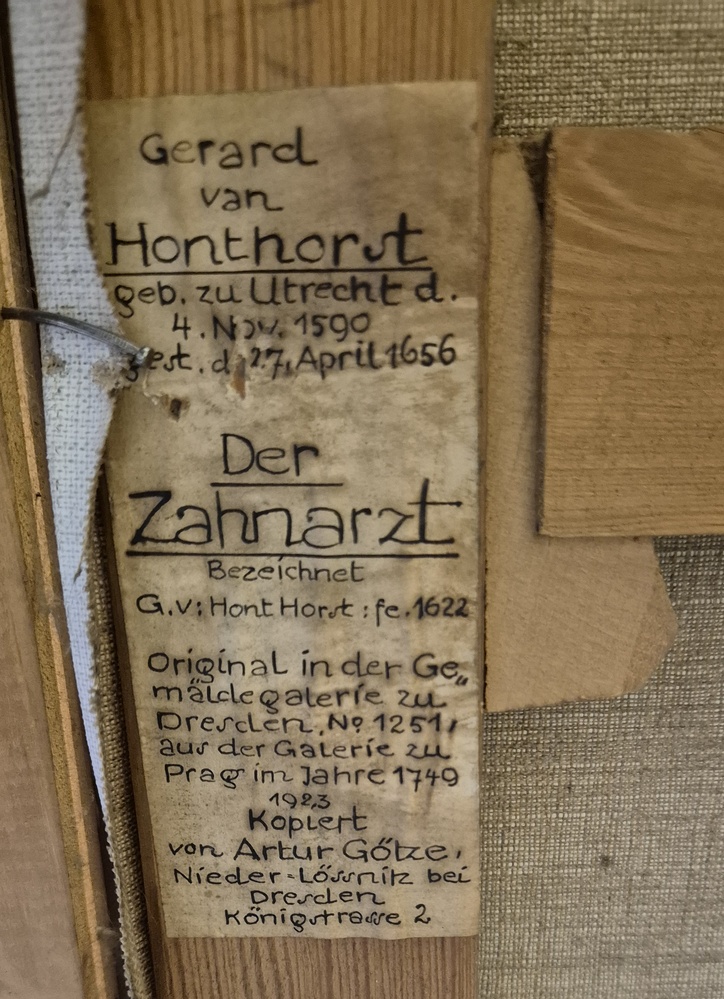 Gerard
van
Honthorst
geb. zu Utrecht d.
4. Nov. 1590
gest. d. 27. April 1656
Der
Zahnarzt
Bezeichnet
G.v: Hont Horst : fe. 1622
Original in der Ge„
mäldegalerie zu
Dresden, No 1251,
aus der Galerie zu
Prag im Jahre 1749
1923
Kopiert
von Artur Götze,
Nieder-Lössnitz bei
Dresden
Königstrasse 2